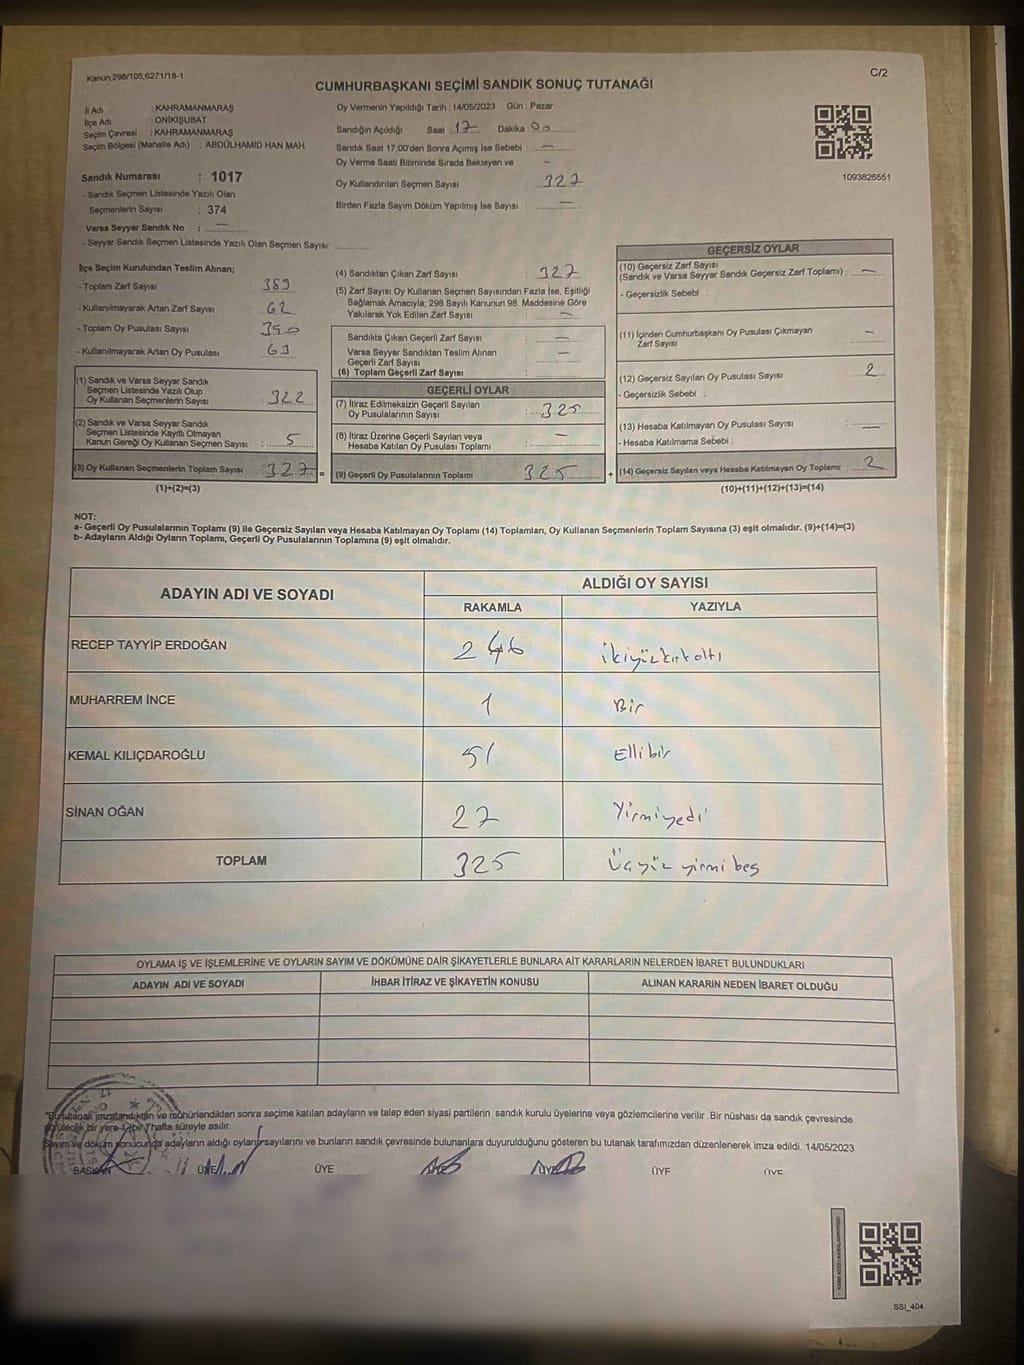 Kanun:298/105,6271/18-1
C/2
CUMHURBAŞKANI SEÇİMİ SANDIK SONUÇ TUTANAĞI
İl Adı : KAHRAMANMARAŞ
İlçe Adı : ONİKİŞUBAT
Seçim Çevresi : KAHRAMANMARAŞ
Seçim Bölgesi (Mahalle Adı) : ABDÜLHAMİD HAN MAH.
Sandık Numarası : 1017
- Sandık Seçmen Listesinde Yazılı Olan
Seçmenlerin Sayısı : 374
Varsa Seyyar Sandık No : —
- Seyyar Sandık Seçmen Listesinde Yazılı Olan Seçmen Sayısı:
Oy Vermenin Yapıldığı Tarih : 14/05/2023 Gün : Pazar
Sandığın Açıldığı Saat : 17 Dakika : 00
Sandık Saat 17:00'den Sonra Açımış İse Sebebi : —
Oy Verme Saati Bitiminde Sırada Bekleyen ve –
Oy Kullandırılan Seçmen Sayısı : 327
Birden Fazla Sayım Döküm Yapılmış İse Sayısı : —
1093828551
İlçe Seçim Kurulundan Teslim Alınan;
- Toplam Zarf Sayısı : 389
- Kullanılmayarak Artan Zarf Sayısı : 62
- Toplam Oy Pusulası Sayısı : 390
- Kullanılmayarak Artan Oy Pusulası : 63
(1) Sandık ve Varsa Seyyar Sandık
Seçmen Listesinde Yazılı Olup
Oy Kullanan Seçmenlerin Sayısı : 322
(2) Sandık ve Varsa Seyyar Sandık
Seçmen Listesinde Kayıtlı Olmayan
Kanun Gereği Oy Kullanan Seçmen Sayısı : 5
(3) Oy Kullanan Seçmenlerin Toplam Sayısı : 327 =
(1)+(2)=(3)
(4) Sandıktan Çıkan Zarf Sayısı : 327
(5) Zarf Sayısı Oy Kullanan Seçmen Sayısından Fazla İse, Eşitliği
Sağlamak Amacıyla, 298 Sayılı Kanunun 98. Maddesine Göre
Yakılarak Yok Edilen Zarf Sayısı : —
Sandıkta Çıkan Geçerli Zarf Sayısı : —
Varsa Seyyar Sandıktan Teslim Alınan
Geçerli Zarf Sayısı : —
(6) Toplam Geçerli Zarf Sayısı :
GEÇERLİ OYLAR
(7) İtiraz Edilmeksizin Geçerli Sayılan
Oy Pusulalarının Sayısı : 325
(8) İtiraz Üzerine Geçerli Sayılan veya
Hesaba Katılan Oy Pusulası Toplamı : —
(9) Geçerli Oy Pusulalarının Toplamı : 325 +
GEÇERSİZ OYLAR
(10) Geçersiz Zarf Sayısı
(Sandık ve Varsa Seyyar Sandık Geçersiz Zarf Toplamı) : —
- Geçersizlik Sebebi :
(11) İçinden Cumhurbaşkanı Oy Pusulası Çıkmayan
Zarf Sayısı : —
(12) Geçersiz Sayılan Oy Pusulası Sayısı : 2
- Geçersizlik Sebebi :
(13) Hesaba Katılmayan Oy Pusulası Sayısı : —
- Hesaba Katılmama Sebebi :
(14) Geçersiz Sayılan veya Hesaba Katılmayan Oy Toplamı : 2
(10)+(11)+(12)+(13)=(14)
NOT:
a- Geçerli Oy Pusulalarının Toplamı (9) ile Geçersiz Sayılan veya Hesaba Katılmayan Oy Toplamı (14) Toplamları, Oy Kullanan Seçmenlerin Toplam Sayısına (3) eşit olmalıdır. (9)+(14)=(3)
b- Adayların Aldığı Oyların Toplamı, Geçerli Oy Pusulalarının Toplamına (9) eşit olmalıdır.
ADAYIN ADI VE SOYADI
ALDIĞI OY SAYISI
RAKAMLA YAZIYLA
RECEP TAYYİP ERDOĞAN 246 ikiyüzkırkaltı
MUHARREM İNCE 1 Bir
KEMAL KILIÇDAROĞLU 51 Ellibir
SİNAN OĞAN 27 Yirmiyedi
TOPLAM 325 Üçyüz yirmi beş
OYLAMA İŞ VE İŞLEMLERİNE VE OYLARIN SAYIM VE DÖKÜMÜNE DAİR ŞİKAYETLERLE BUNLARA AİT KARARLARIN NELERDEN İBARET BULUNDUKLARI
ADAYIN ADI VE SOYADI İHBAR İTİRAZ VE ŞİKAYETİN KONUSU ALINAN KARARIN NEDEN İBARET OLDUĞU
imzalandıktan ve mühürlendikten sonra seçime katılan adayların ve talep eden siyasi partilerin sandık kurulu üyelerine veya gözlemcilerine verilir .Bir nüshası da sandık çevresinde
görülecek bir yere 1 (bir) hafta süreyle asılır.
Sayım ve döküm sonucunda adayların aldığı oyların sayılarını ve bunların sandık çevresinde bulunanlara duyurulduğunu gösteren bu tutanak tarafımızdan düzenlenerek imza edildi. 14/05/2023
BAŞKAN ÜYE ÜYE ÜYE ÜYE ÜYE ÜYE
SSI_404